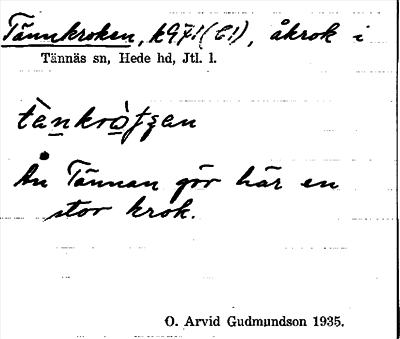 Tännkroken, k971(C1), åkrok i
Tännäs sn, Hede hd, Jtl. l.
Ån Tännan gör här en
stor krok.
O. Arvid Gudmundson 1935.